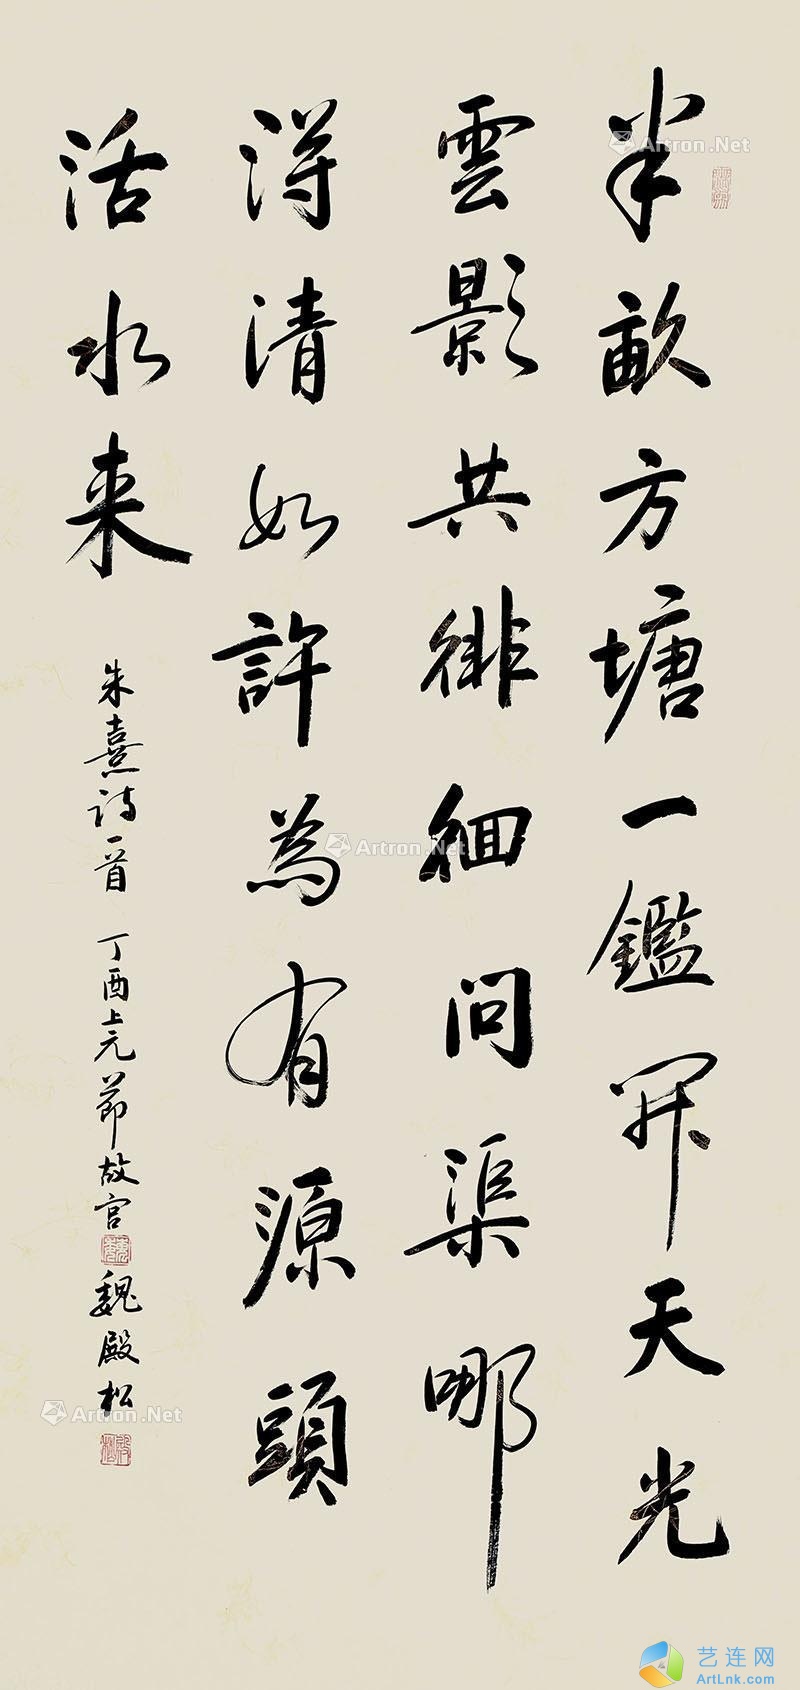 半畝方塘一鑑開天光
雲影共徘徊问渠哪
得清如許為有源頭
活水来
朱熹诗一首 丁酉上元节故宫魏殿松
Artron.Net
Artron.Net
Artron.Net
艺连网
ArtLnk.com